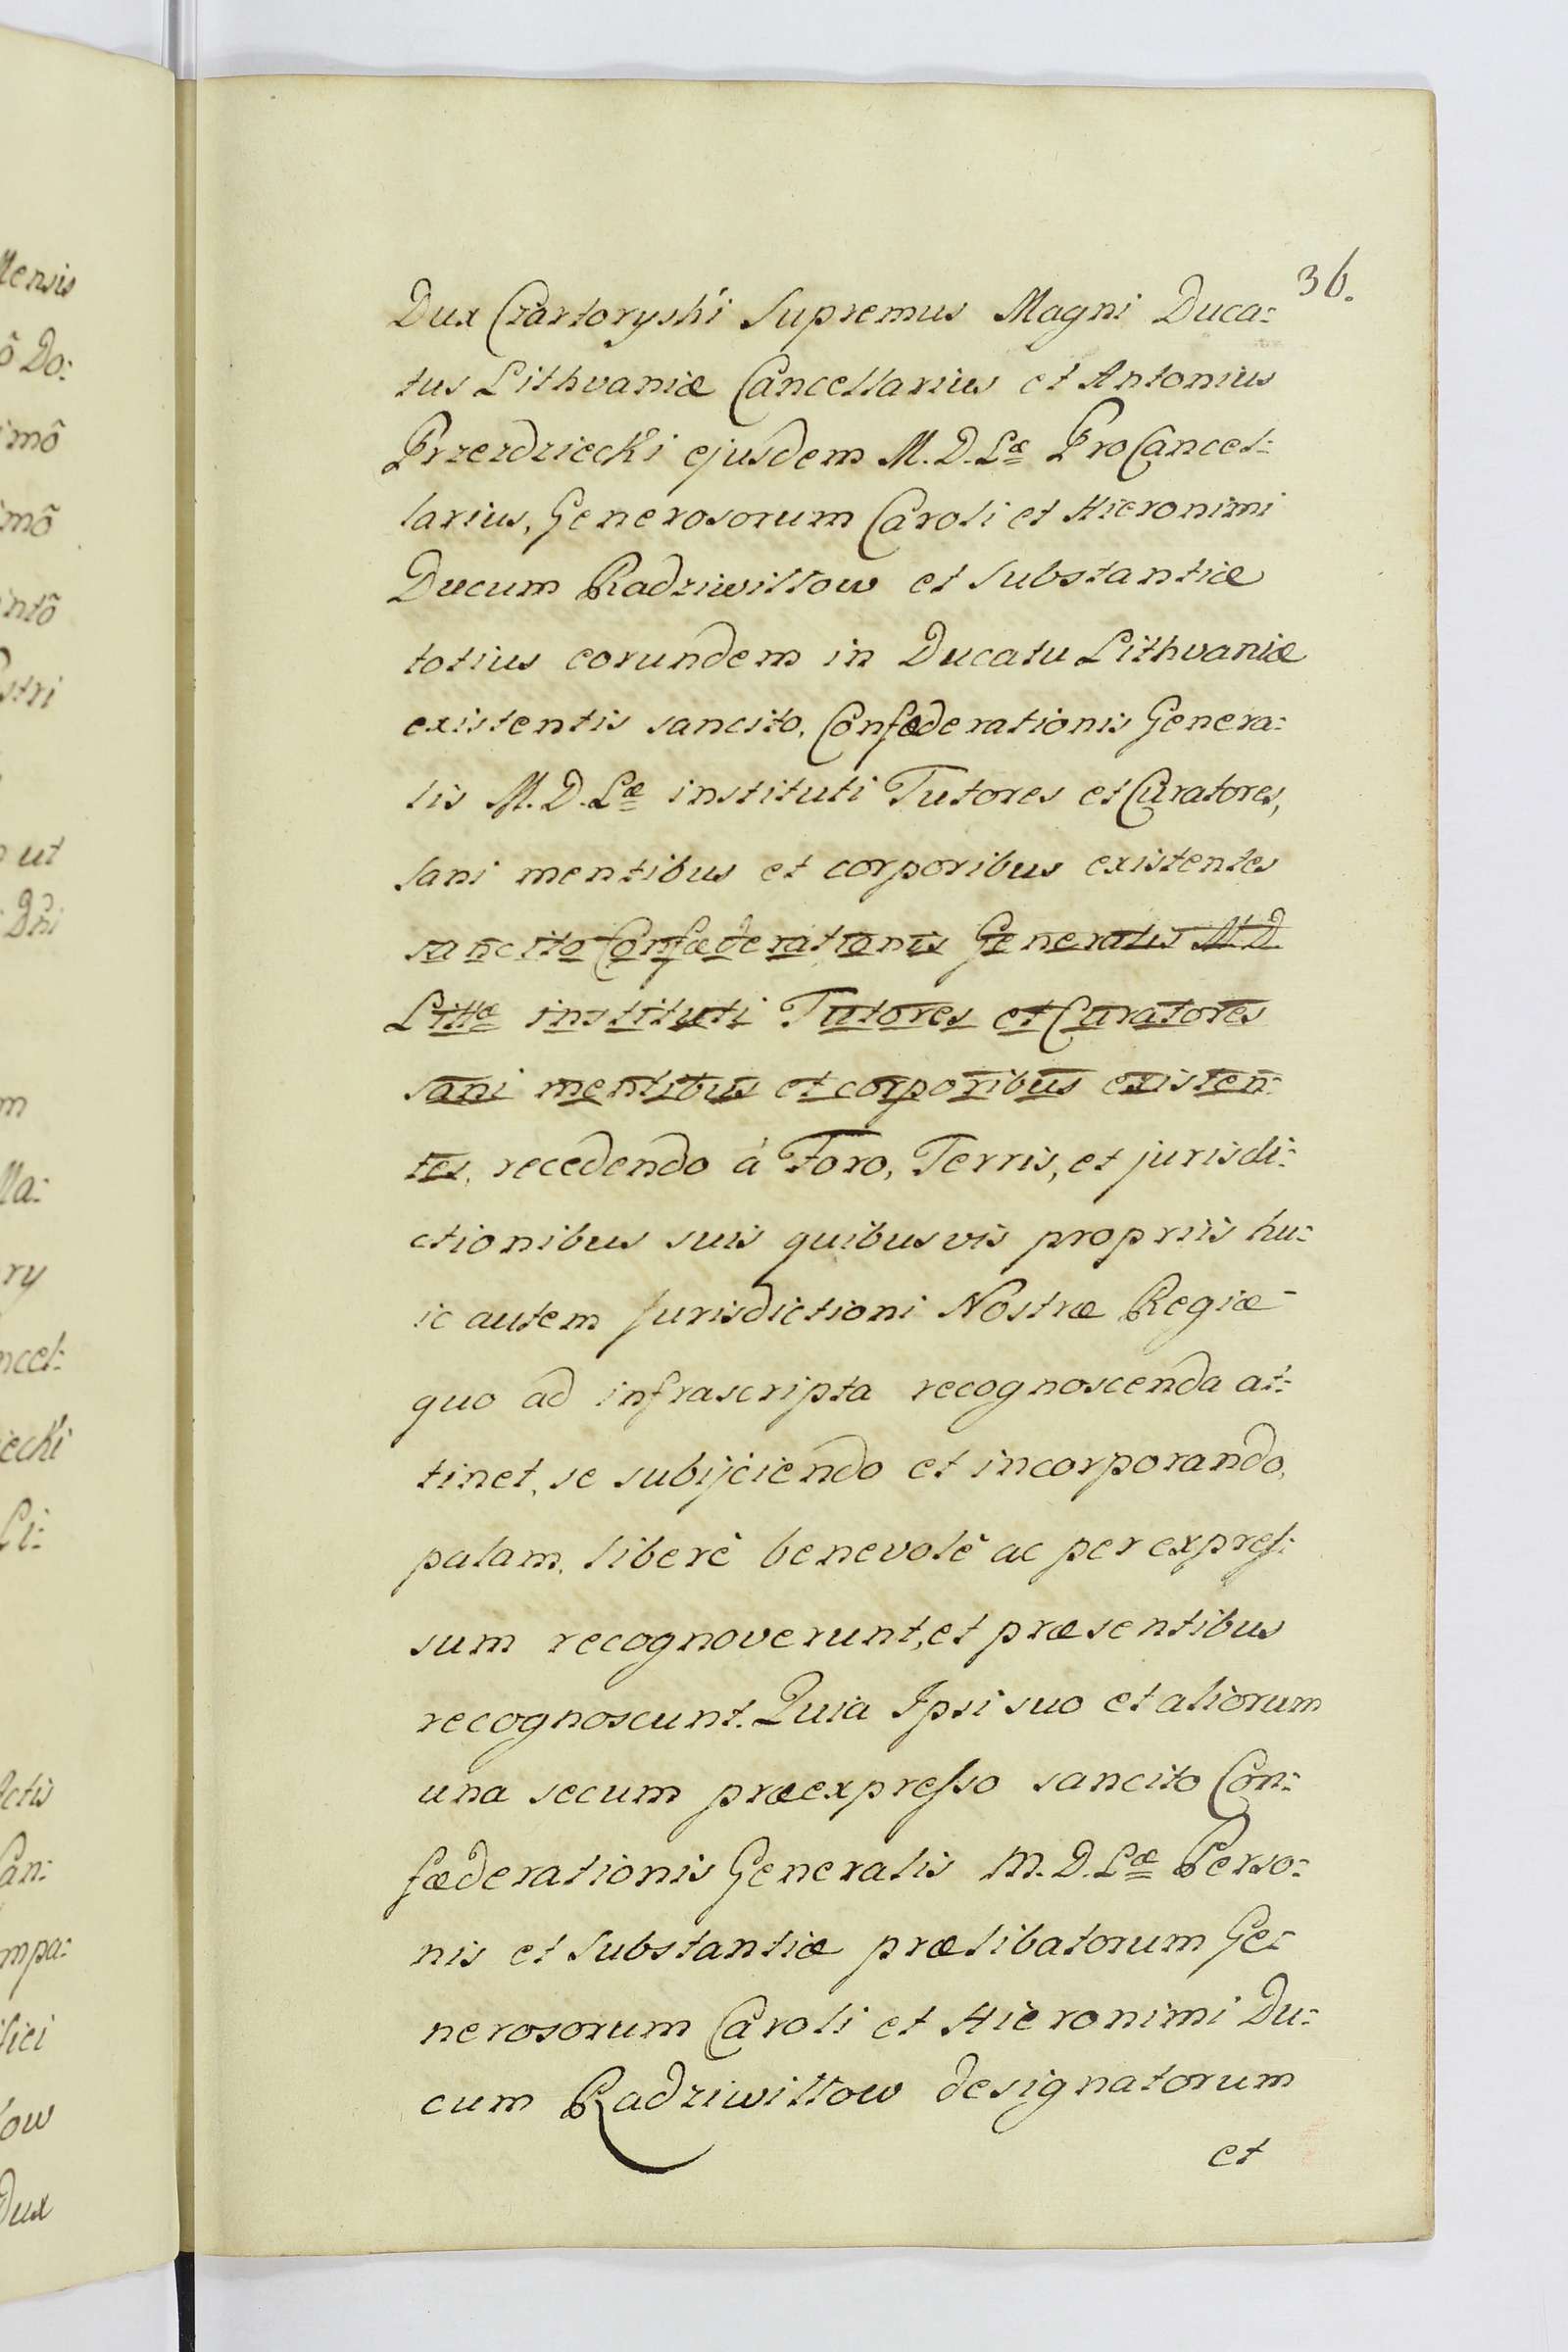 36.
Dux Czartoryski Supremus Magni Duca:
tus Lithvaniæ Cancellarius et Antonius
Przezdziecki ejusdem M. D. Læ ProCancel:
larius, Generosorum Caroli et Hieronimi
Ducum Radziwiłłow et Substantiæ
totius eorundem in Ducatu Lithvaniæ
existentis sancito, Confæderationis Genera:
lis M. D. Læ instituti Tutores et Curatores,
sani mentibus et corporibus existentes
sancito Confæderationis Generalis M D.
Littæ instituti Tutores et Curatores
sani mentibus et corporibus existen:
tes, recedendo à Foro, Terris, et jurisdi:
ctionibus suis quibusvis propriis hu:
ic autem Jurisdictioni Nostræ Regiæ
quo ad infrascripta recognoscenda at:
tinet, se subijciendo et incorporando,
palam, liberè benevolè ac per expres:
sum recognoverunt, et præsentibus
recognoscunt. Quia Ipsi suo et aliorum
una secum præexpresso sancito Con:
fæderationis Generalis M. D. Læ Perso:
nis et Substantiæ prælibatorum Ge:
nerosorum Caroli et Hieronimi Du:
cum Radziwiłłow designatorum
et
Mensis
ô Do:
imô
imô
intô
stri
ut
Dni
m
lla:
ry
ncel:
iecki
Li:
Actis
Can:
mpa:
fici
low
Dux